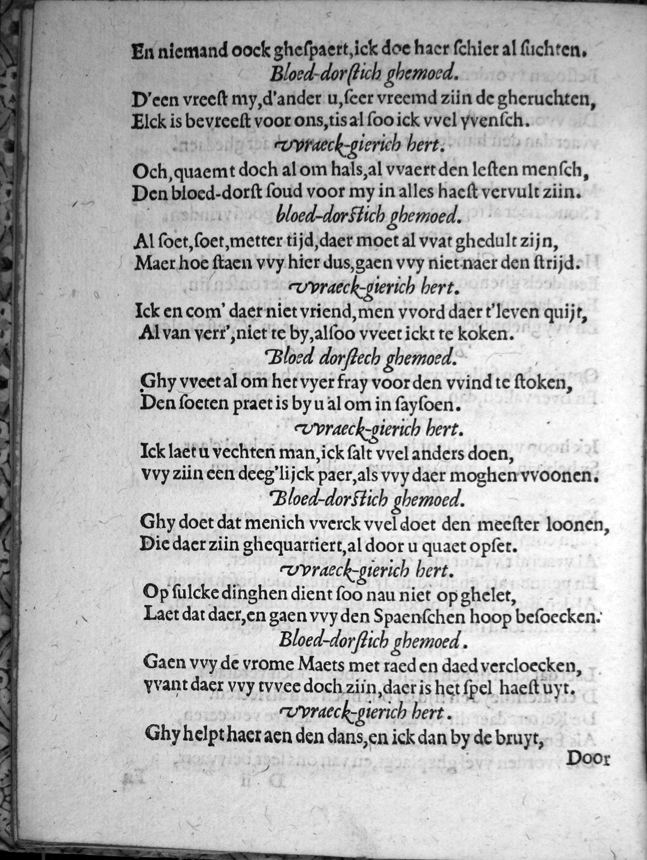 En niemand oock gheſpaert, ick doe haer ſchier al ſuchten.
Bloed-dorſtich ghemoed.
D'een vreeſt my, d'ander u, ſeer vreemd ziin de gheruchten,
Elck is bevreeſt voor ons, tis al ſoo ick vvel yvenſch.
vvraeck-gierich hert.
Och, quaemt doch al om hals, al vvaert den leſten menſch,
Den bloed-dorſt ſoud voor my in alles haeſt vervult ziin.
bloed-dorſtich ghemoed.
Al ſoet, ſoet, metter tijd, daer moet al vvat ghedult zijn,
Maer hoe ſtaen vvy hier dus, gaen vvy niet naer den ſtrijd.
vvraeck-gierich hert.
Ick en com' daer niet vriend, men vvord daer t'leven quijt,
Al van verr', niet te by, alſoo vveet ickt te koken.
Bloed dorſtech ghemoed.
Ghy vveet al om het vyer fray voor den vvind te ſtoken,
Den ſoeten praet is by u al om in ſayſoen.
vvraeck-gierich hert.
Ick laet u vechten man, ick ſalt vvel anders doen,
vvy ziin een deeg'lijck paer, als vvy daer moghen vvoonen.
Bloed-dorſtich ghemoed.
Ghy doet dat menich vverck vvel doet den meeſter loonen,
Die daer ziin ghequartiert, al door u quaet opſet.
vvraeck-gierich hert.
Op ſulcke dinghen dient ſoo nau niet op ghelet,
Laet dat daer, en gaen vvy den Spaenſchen hoop beſoecken.
Bloed-dorſtich ghemoed.
Gaen vvy de vrome Maets met raed en daed vercloecken,
yvant daer vvy tvvee doch ziin, daer is het ſpel haeſt uyt.
vvraeck-gierich hert.
Ghy helpt haer aen den dans, en ick dan by de bruyt,
Door